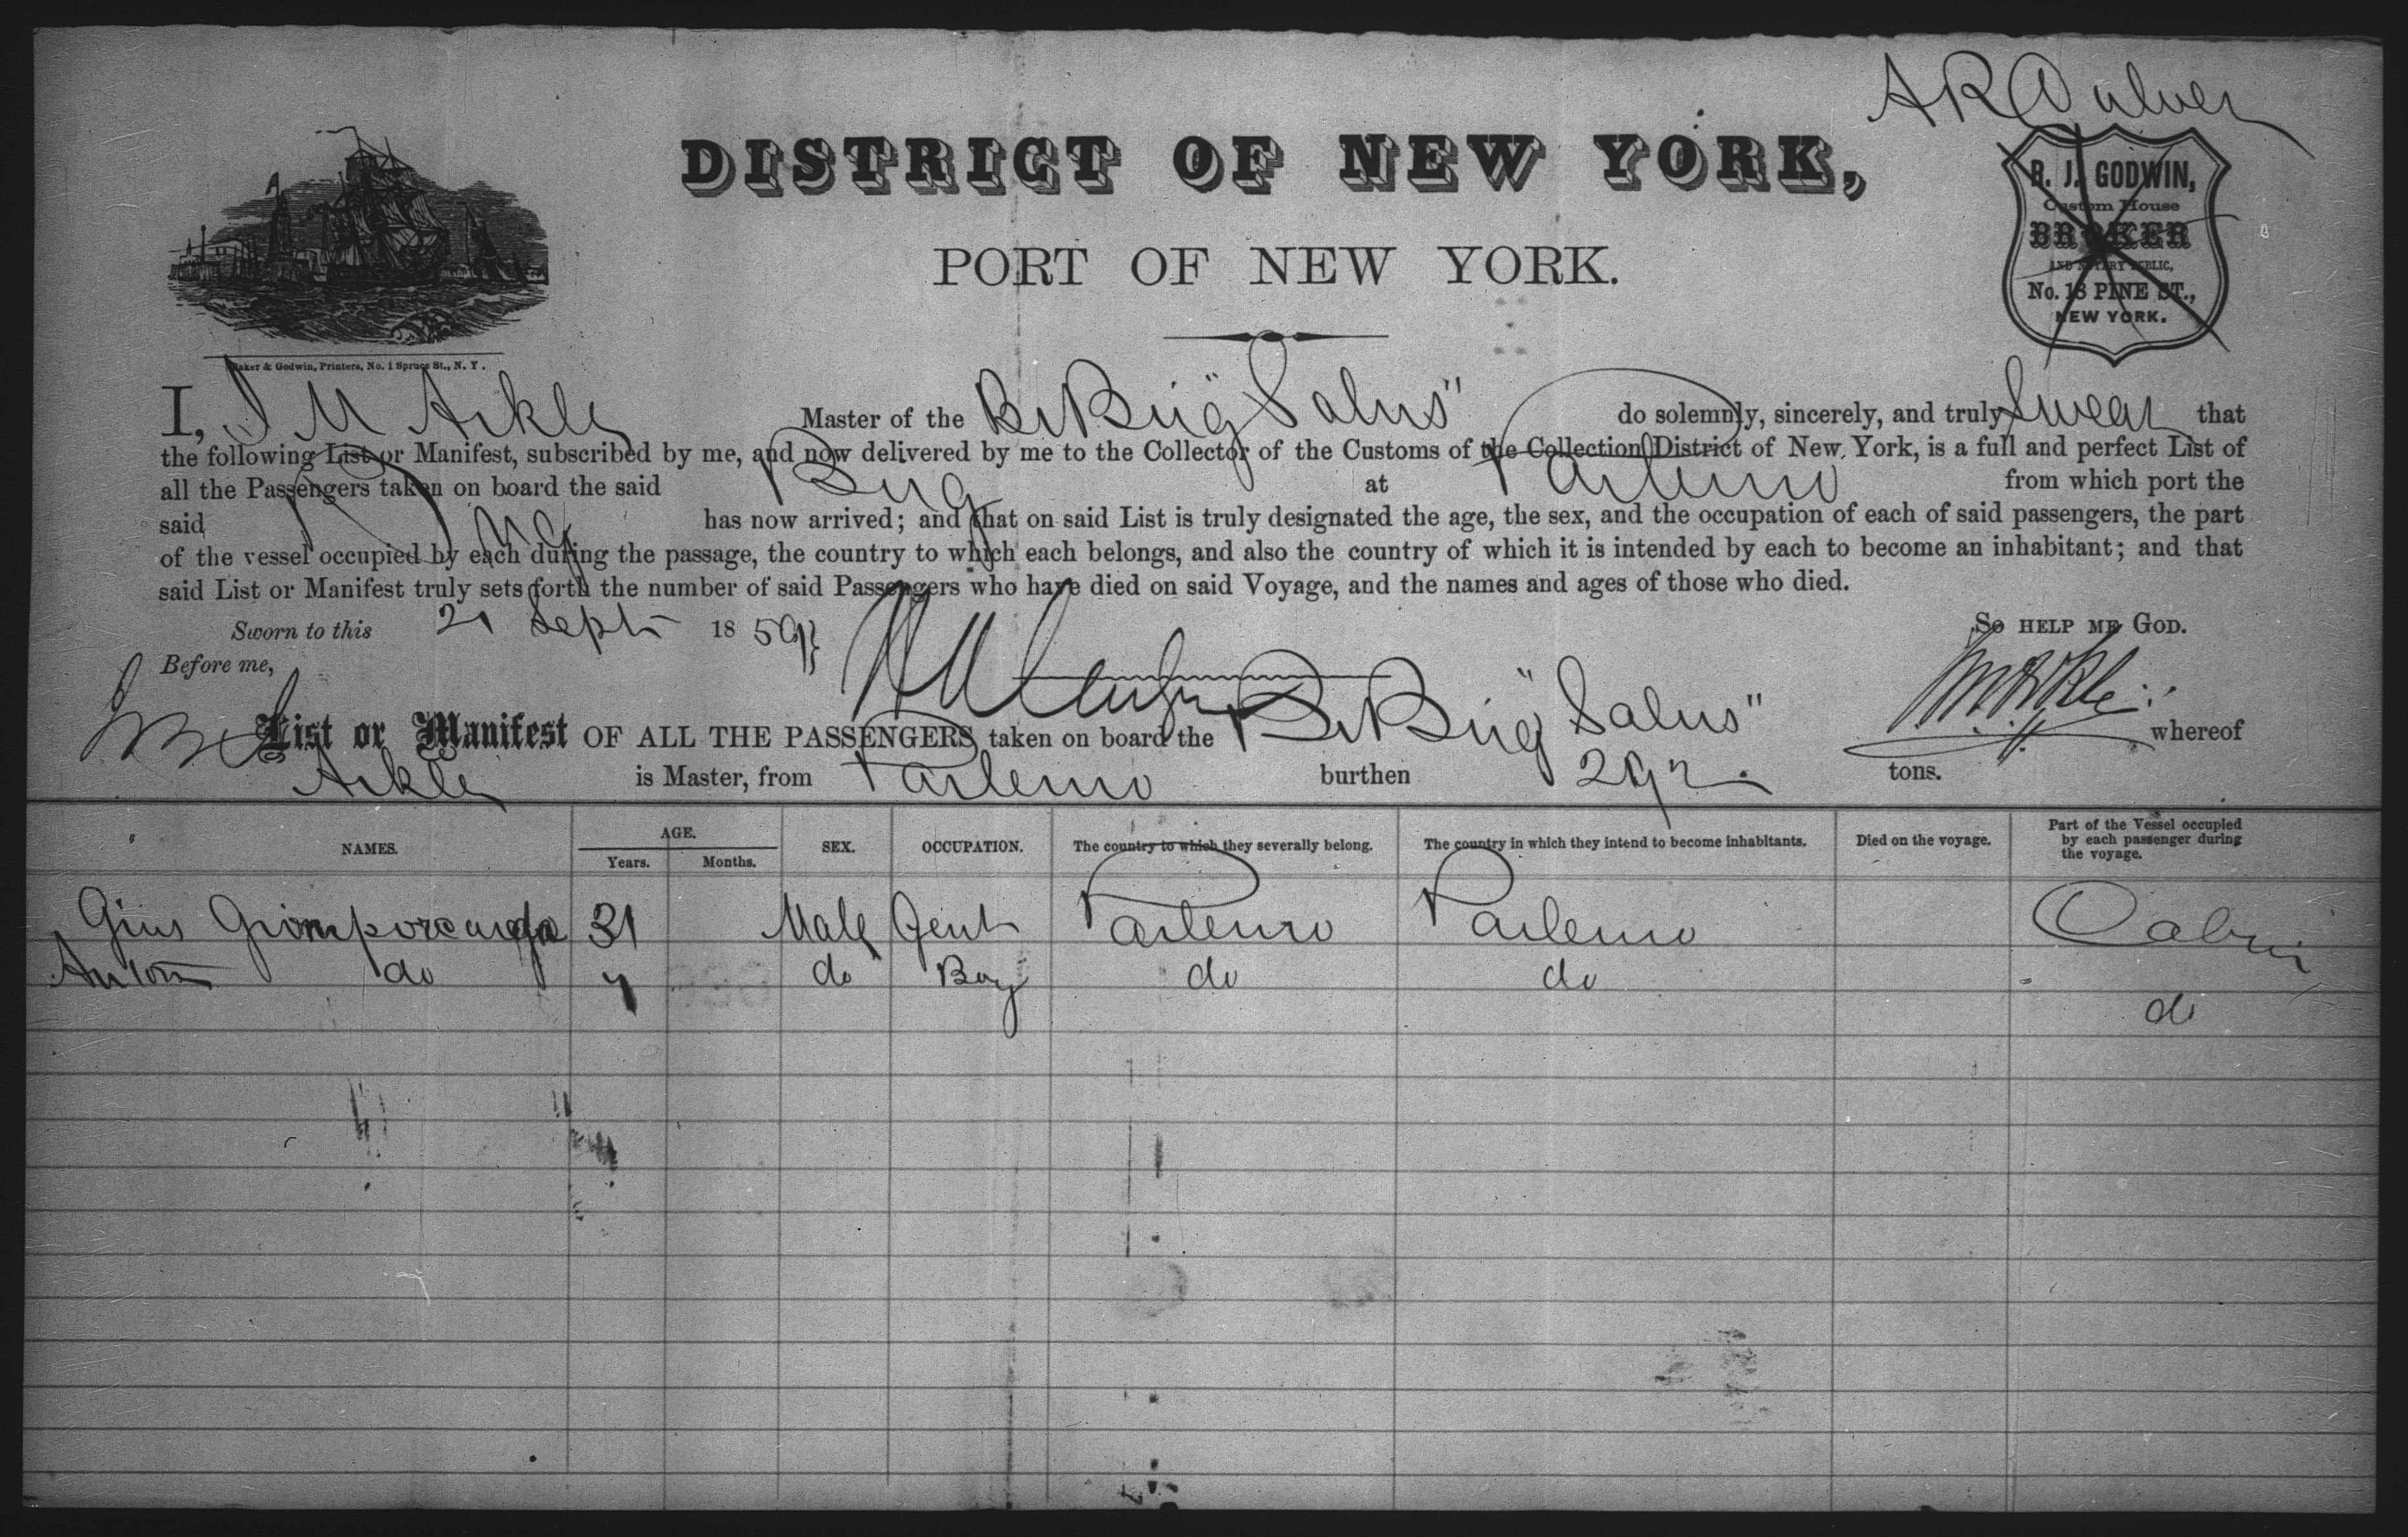 DISTRICT OF NEW YORK,
PORT OF NEW YORK.
B. J. GODWIN,
Custom House
BROKER
AND NOTARY PUBLIC,
No. 13 PINE ST.,
NEW YORK.
Baker & Godwin, Printers, No. 1 Spruce St., N. Y.
I, J M Arkle Master of the Br Brig "Salus" do solemnly, sincerely, and truly Swear that
the following List or Manifest, subscribed by me, and now delivered by me to the Collector of the Customs of the Collection District of New York, is a full and perfect List of
all the Passengers taken on board the said Brig at Palermo from which port the
said Brig has now arrived; and that on said List is truly designated the age, the sex, and the occupation of each of said passengers, the part
of the vessel occupied by each during the passage, the country to which each belongs, and also the country of which it is intended by each to become an inhabitant; and that
said List or Manifest truly sets forth the number of said Passengers who have died on said Voyage, and the names and ages of those who died.
Sworn to this 21 Sept 1859 } So HELP ME GOD.
Before me,
List or Manifest OF ALL THE PASSENGERS taken on board the Br Brig "Salus" whereof
Arkle is Master, from Palermo burthen 292 tons.
NAMES. AGE. Years. Months. SEX. OCCUPATION. The country to which they severally belong. The country in which they intend to become inhabitants. Died on the voyage. Part of the Vessel occupied by each passenger during the voyage.
Gius 31 Male Gent Palermo Palermo Cabin
Anton do do Boy do do do